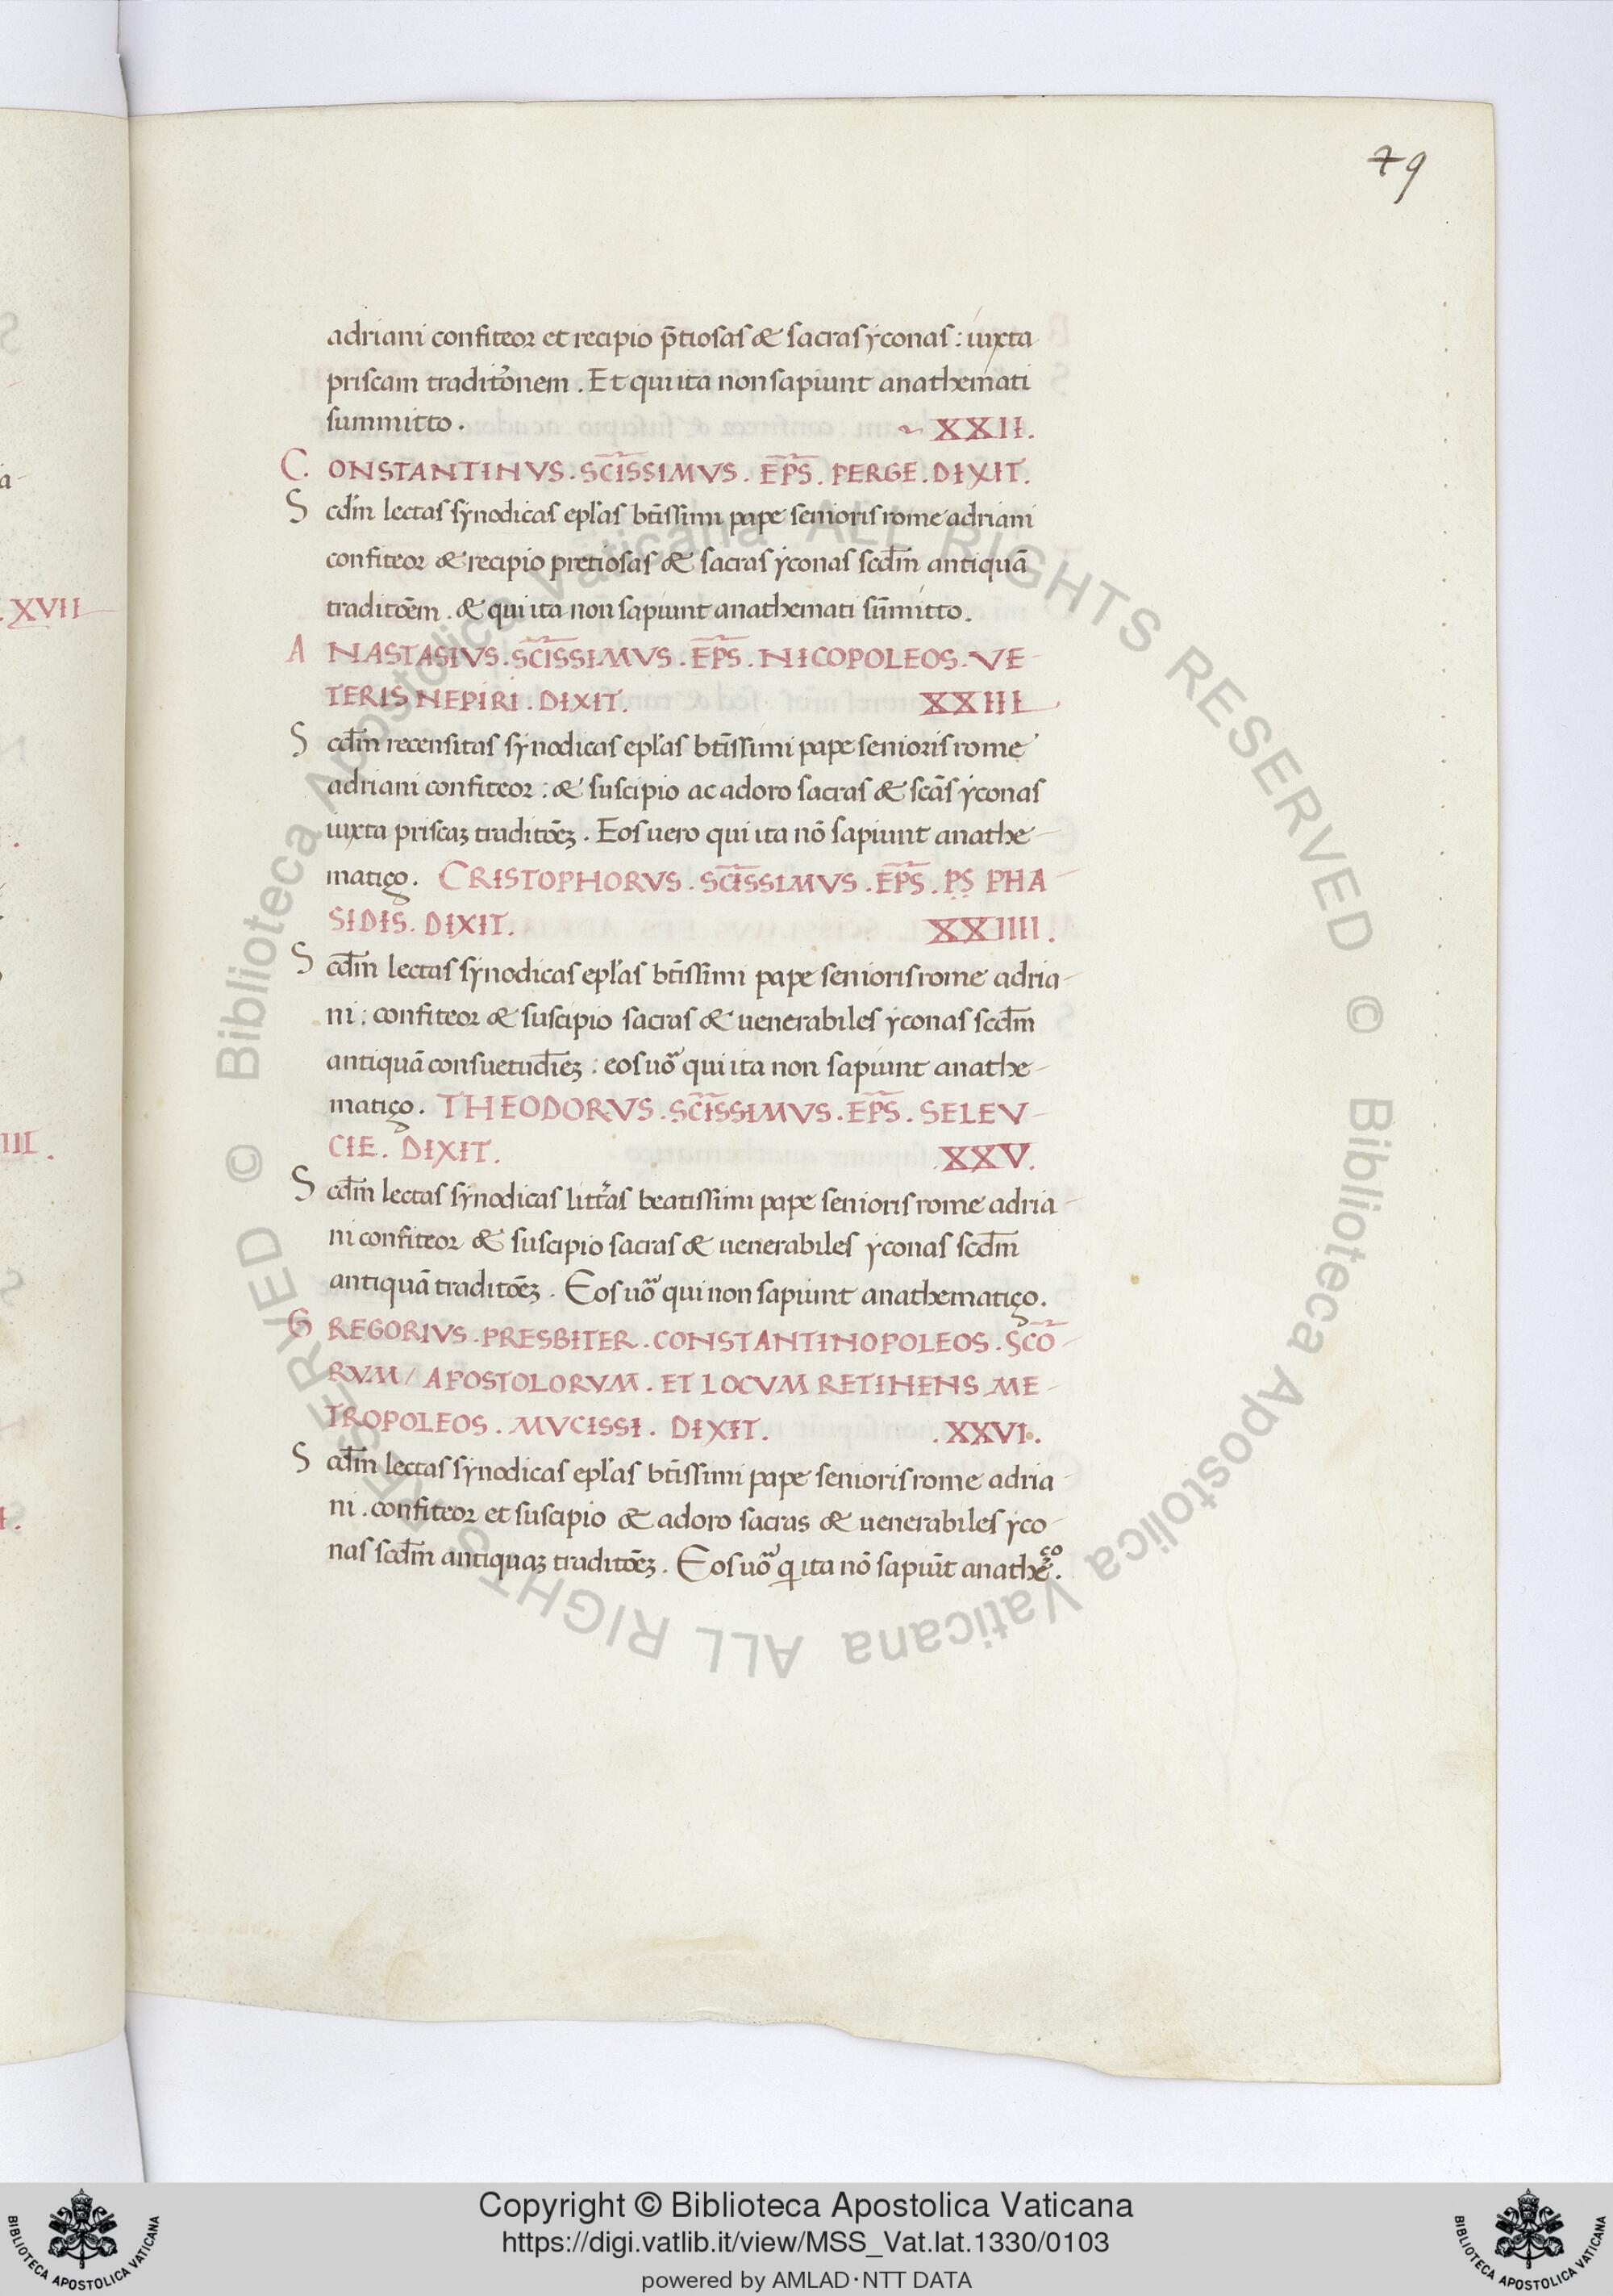 49
adriani confiteor et recipio p̄tiosas & sacras yconas : iuxta
priscam traditōnem . Et qui ita non sapiunt anathemati
summitto .
XXII.
CONSTANTINVS . SC̄ISSIMVS . EP̄S . PERGE . DIXIT.
Scd̄m lectas synodicas epl̄as bt̄issimi pape senioris rome adriani
confiteor & recipio pretiosas & sacras yconas scd̄m antiquā
traditōem . & qui ita non sapiunt anathemati sūmitto .
ANASTASIVS . SC̄ISSIMVS . EP̄S . NICOPOLEOS . VE-
TERIS NEPIRI . DIXIT.
XXIII
Scd̄m recensitas synodicas epl̄as bt̄issimi pape senioris rome
adriani confiteor : & suscipio ac adoro sacras & scās yconas
iuxta priscaꝫ traditōeꝫ . Eos uero qui ita nō sapiunt anathe-
matiço . CRISTOPHORVS . SC̄ISSIMVS . EP̄S . P̣Ṣ PHA-
SIDIS . DIXIT.
XXIIII.
Scd̄m lectas synodicas epl̄as bt̄issimi pape senioris rome adria-
ni : confiteor & suscipio sacras & uenerabiles yconas scd̄m
antiquā consuetud̄ieꝫ : eos uō qui ita non sapiunt anathe-
matiço . THEODORVS . SC̄ISSIMVS . EP̄S . SELEV-
CIE . DIXIT.
.XXV.
Scd̄m lectas synodicas litt̄as beatissimi pape senioris rome adria-
ni confiteor & suscipio sacras & uenerabiles yconas scd̄m
antiquā traditōeꝫ . Eos uō qui non sapiunt anathematiço .
GREGORIVS . PRESBITER . CONSTANTINOPOLEOS . SCŌ-
RVM / APOSTOLORVM . ET LOCVM RETINENS ME-
TROPOLEOS . MVCISSI . DIXIT .
.XXVI.
Scd̄m lectas synodicas epl̄as bt̄issimi pape senioris rome adria-
ni . confiteor et suscipio & adoro sacras & uenerabiles yco-
nas scd̄m antiquaꝫ traditōeꝫ . Eos uō q ita nō sapiūt anathe .
XVII
III .
© Biblioteca Apostolica Vaticana ALL RIGHTS RESERVED © Biblioteca Apostolica Vaticana ALL RIGHTS RESERVED
Copyright © Biblioteca Apostolica Vaticana
https://digi.vatlib.it/view/MSS_Vat.lat.1330/0103
powered by AMLAD·NTT DATA
BIBLIOTECA APOSTOLICA VATICANA
BIBLIOTECA APOSTOLICA VATICANA